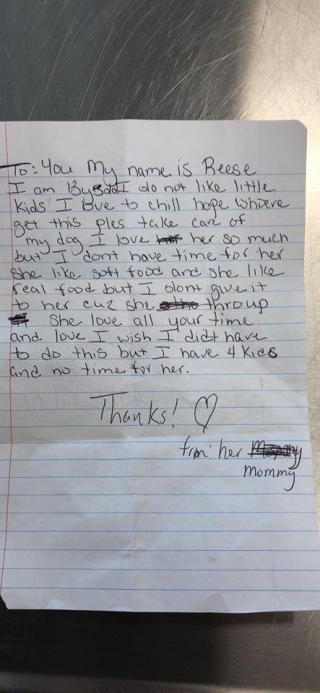 To: You My name is Reese
I am 13y old I do not like little
kids I love to chill hope whoere
get this ples take care of
my dog I love her so much
but I dont have time for her
She like soft food and she like
real food but I dont give it
to her cuz she throup
She love all your time
and love I wish I didt have
to do this but I have 4 kids
and no time for her.
Thanks! ♡
from: her
mommy